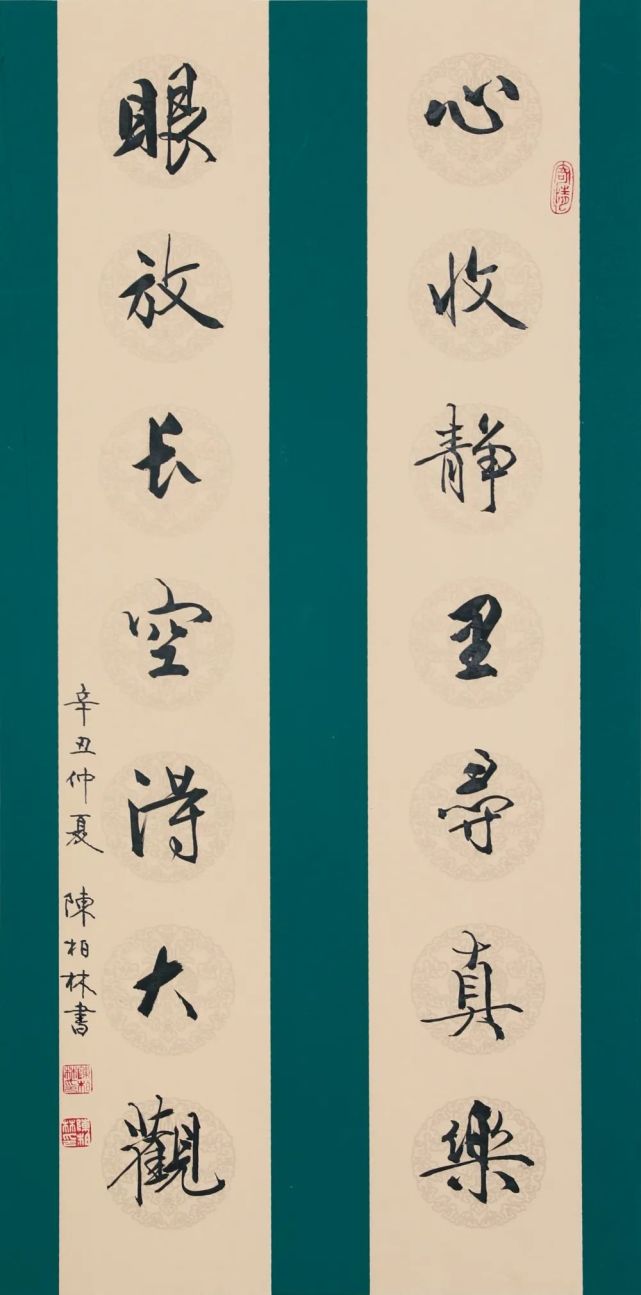 心收静里尋真樂
眼放长空得大觀
辛丑仲夏 陳柏林書